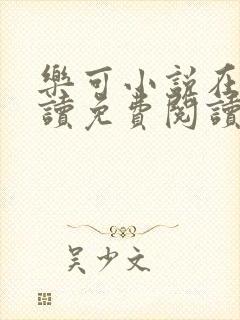 樂可小說在
讀免費閱讀
吳少文